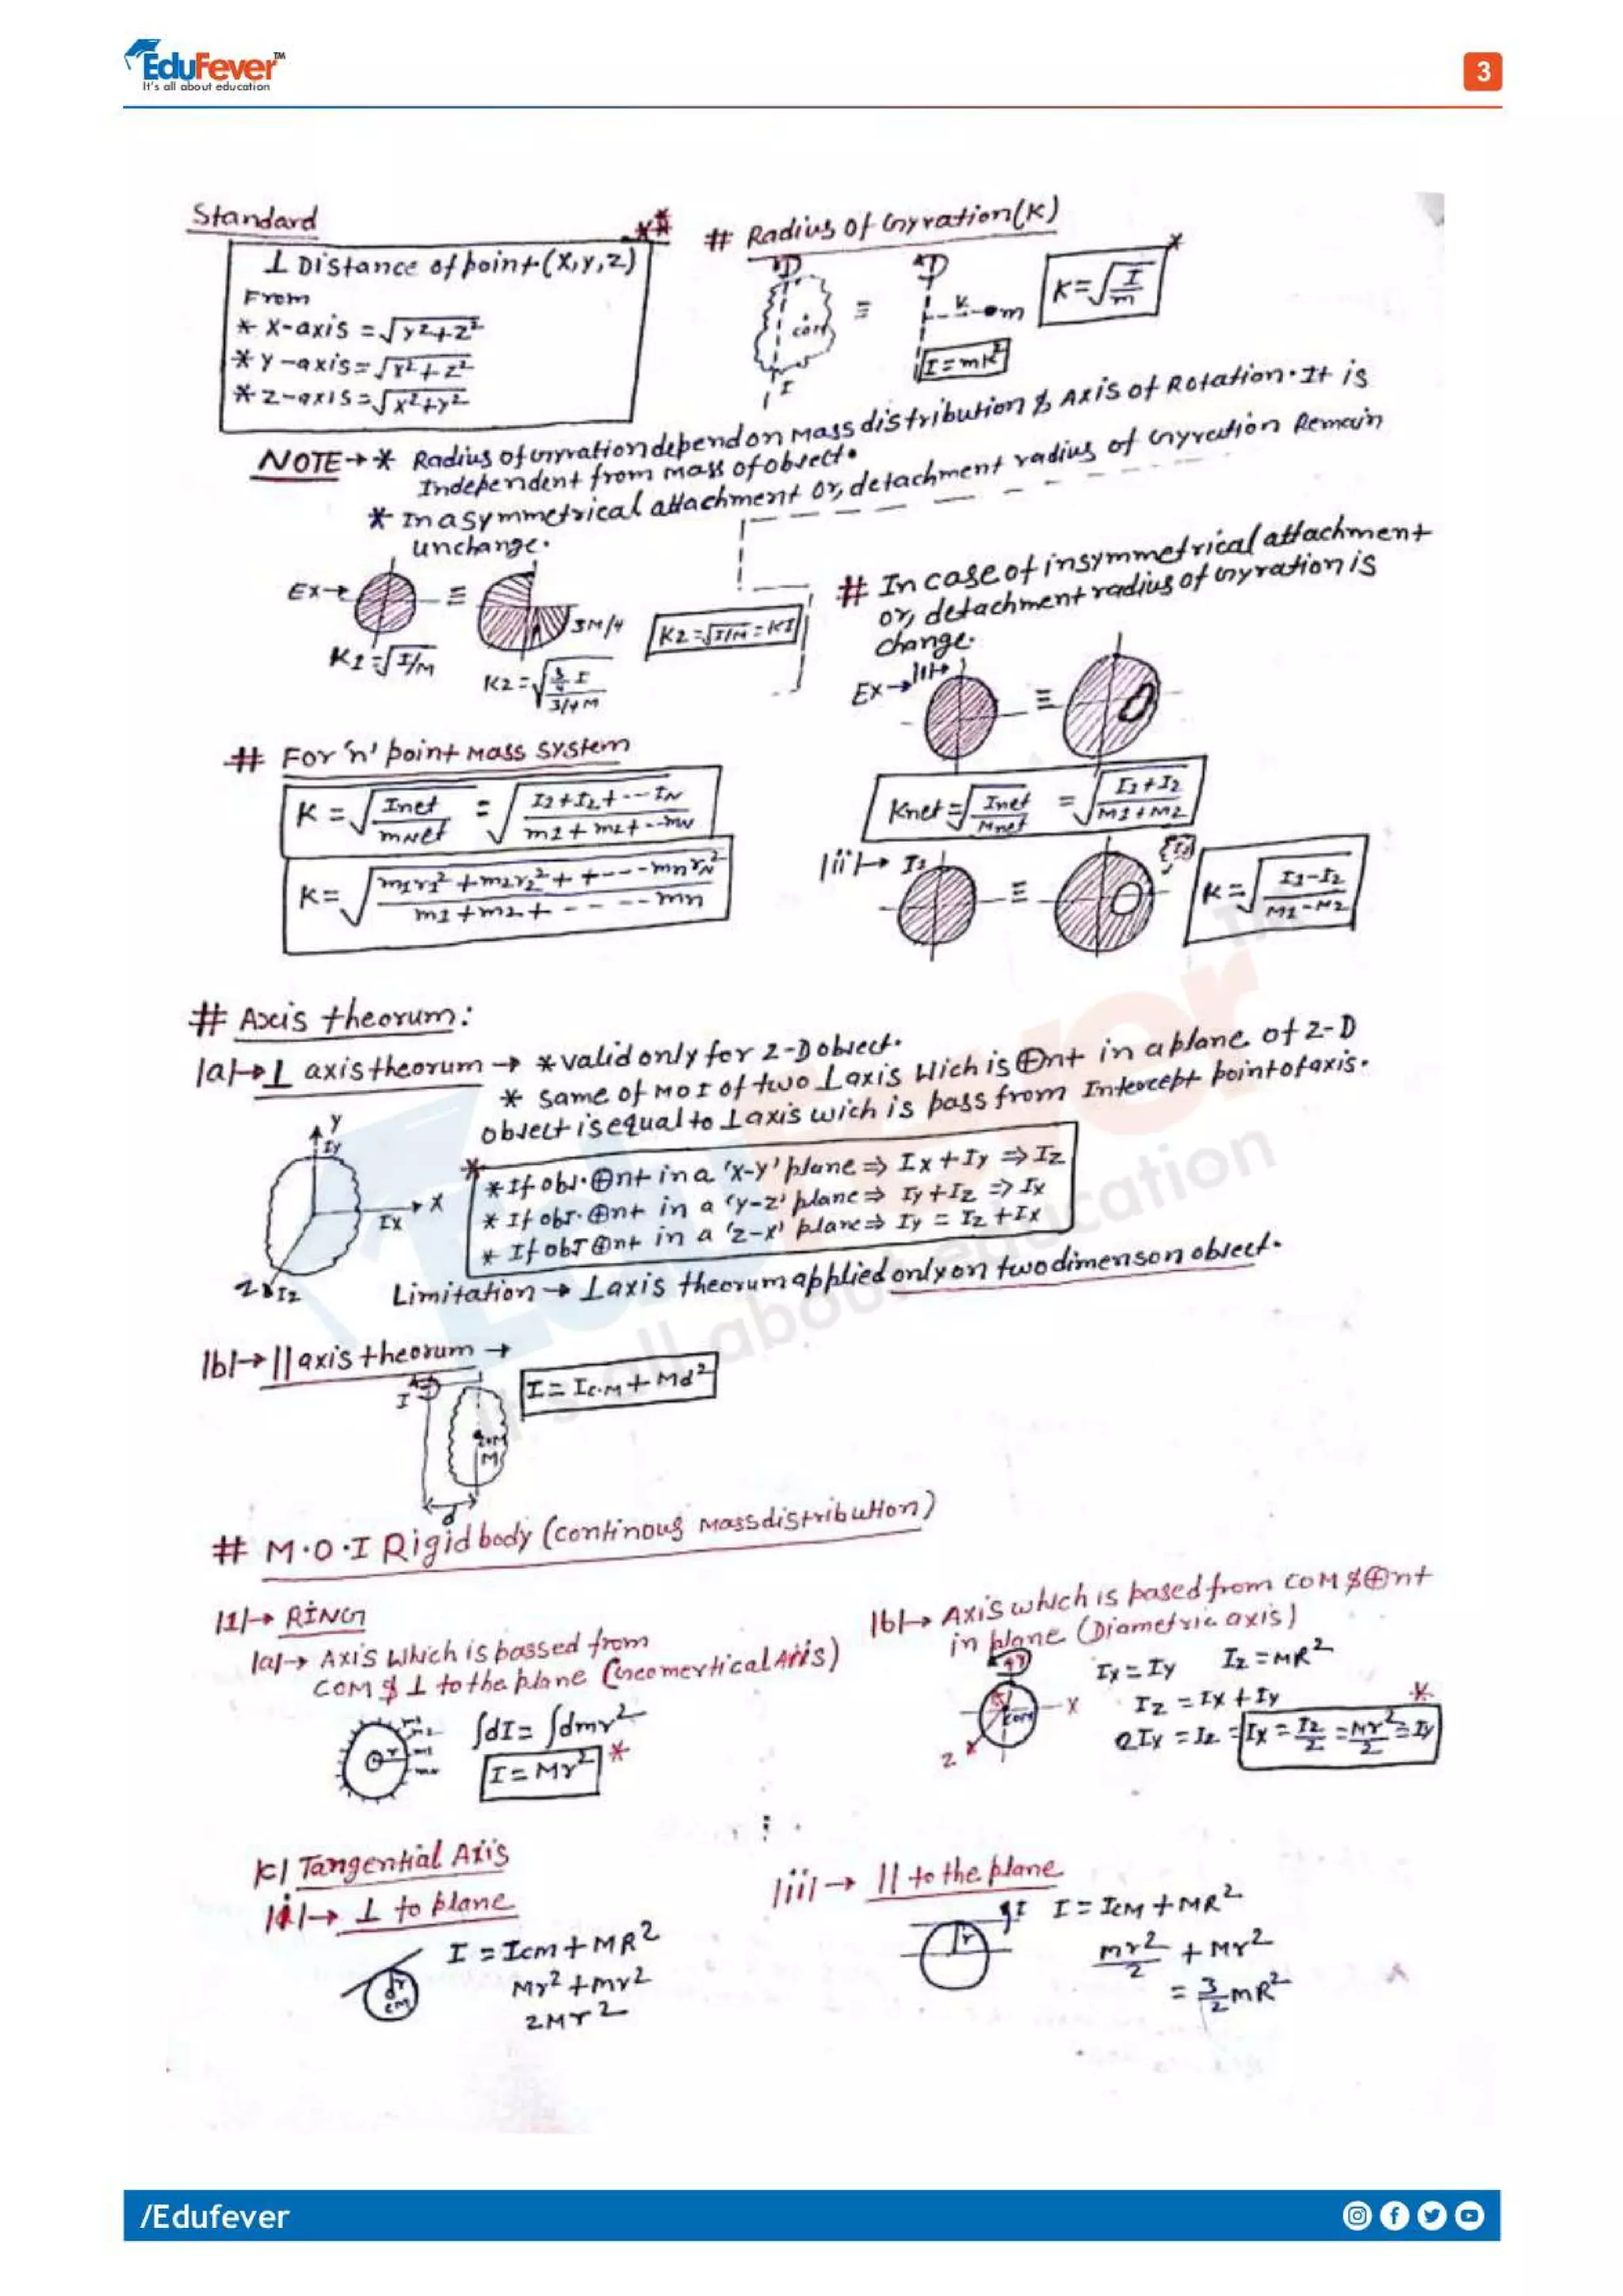 EduFever™
It's all about education
3
Standard
⊥ Distance of point (x,y,z)
From
* x-axis = √y²+z²
* y-axis = √x²+z²
* z-axis = √x²+y²
# Radius of Gyration(K)
com
I
K
m
I = mK²
K = √I/m
NOTE → * Radius of Gyration depend on Mass distribution & Axis of Rotation. It is
Independent from mass of object.
* In a symmetrical attachment or, detachment radius of Gyration Remain
unchange.
Ex→
K1 = √I/M
3M/4
K2 = √(3/4 I)/(3/4 M)
K2 = √I/M = K1
# In case of insymmetrical attachment
or, detachment radius of Gyration is
change.
Ex → |i|→
Knet = √Inet/Mnet = √(I1+I2)/(M1+M2)
|ii|→ I1
K = √(I1-I2)/(M1-M2)
# For 'n' point Mass System
K = √Inet/mNet = √(I1+I2+--IN)/(m1+m2+--mN)
K = √(m1r1²+m2r2²++---mnrN²)/(m1+m2+----mn)
# Axis theorum:
|a|→ ⊥ axis theorum → * valid only for 2-D object.
* Same of MOI of two ⊥axis Wich is ⊕nt in a plane of 2-D
object is equal to ⊥axis wich is pass from Intercept point of axis.
Y
Iy
X
Ix
Z
Iz
* If obj. ⊕nt in a 'x-y' plane ⇒ Ix+Iy ⇒ Iz
* If obj. ⊕nt in a 'y-z' plane ⇒ Iy+Iz ⇒ Ix
* If obj ⊕nt in a 'z-x' plane ⇒ Iy = Iz+Ix
Limitation → ⊥axis theorum applied only on two dimenson object.
|b|→ || axis theorum →
I
COM
M
d
I = IC.M + Md²
# M.O.I Rigid body (Continous Mass distribution)
|1|→ RING
|a|→ Axis Which is passed from
COM & ⊥ to the plane (Geomertical Axis)
m1
m2
r
∫dI = ∫dmr²
I = Mr²
|b|→ Axis which is pased from COM & ⊕nt
in plane (Diometric axis)
X
COM
Z
Ix = Iy Iz = MR²
Iz = Ix + Iy
2Ix = Iz = Ix = Iz/2 = Mr²/2 = Iy
|c| Tangential Axis
|i|→ ⊥ to plane
I = Icm + MR²
Mr² + mr²
2Mr²
|ii|→ || to the plane
I
r
I = Icm + MR²
mr²/2 + Mr²
= 3/2 mR²
/Edufever